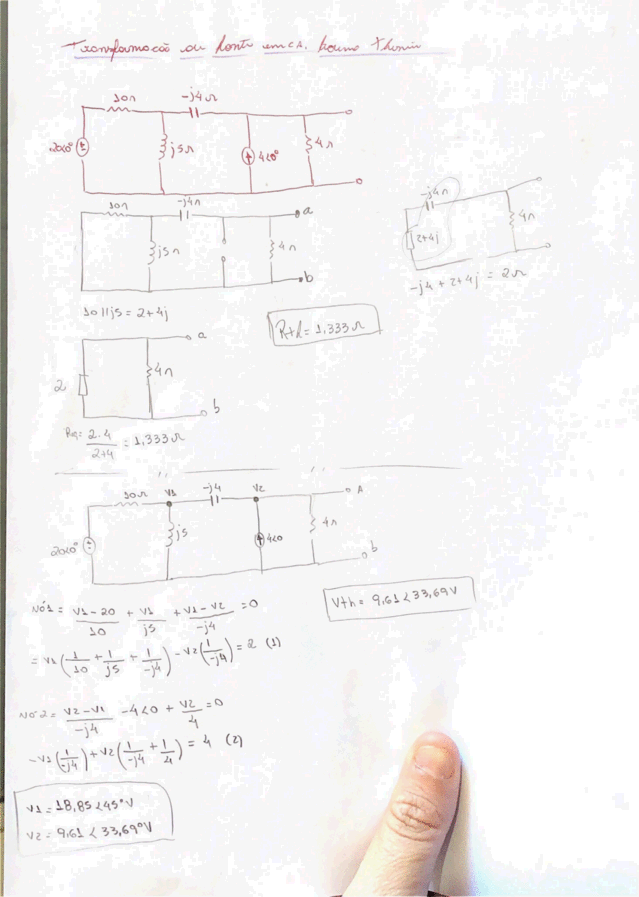 Transformação ou fonte em CA. Thevenin
10Ω -j4Ω
20<0° j5Ω 4<0° 4Ω
10Ω -j4Ω a
j5Ω 4Ω
b
-j4Ω
2+4j 4Ω
-j4 + 2+4j = 2Ω
10||j5 = 2+4j
Rth = 1,333Ω
a
2 4Ω
b
Req = 2.4 / 2+4 = 1,333Ω
10Ω V1 -j4 V2 A
20<0° j5 4<0 4Ω
b
Nó1 = V1-20/10 + V1/j5 + V1-V2/-j4 = 0
Vth = 9,61<33,69V
= V1(1/10 + 1/j5 + 1/-j4) - V2(1/-j4) = 2 (1)
Nó 2 = V2-V1/-j4 - 4<0 + V2/4 = 0
-V1(1/-j4) + V2(1/-j4 + 1/4) = 4 (2)
V1 = 18,85<45°V
V2 = 9,61<33,69°V